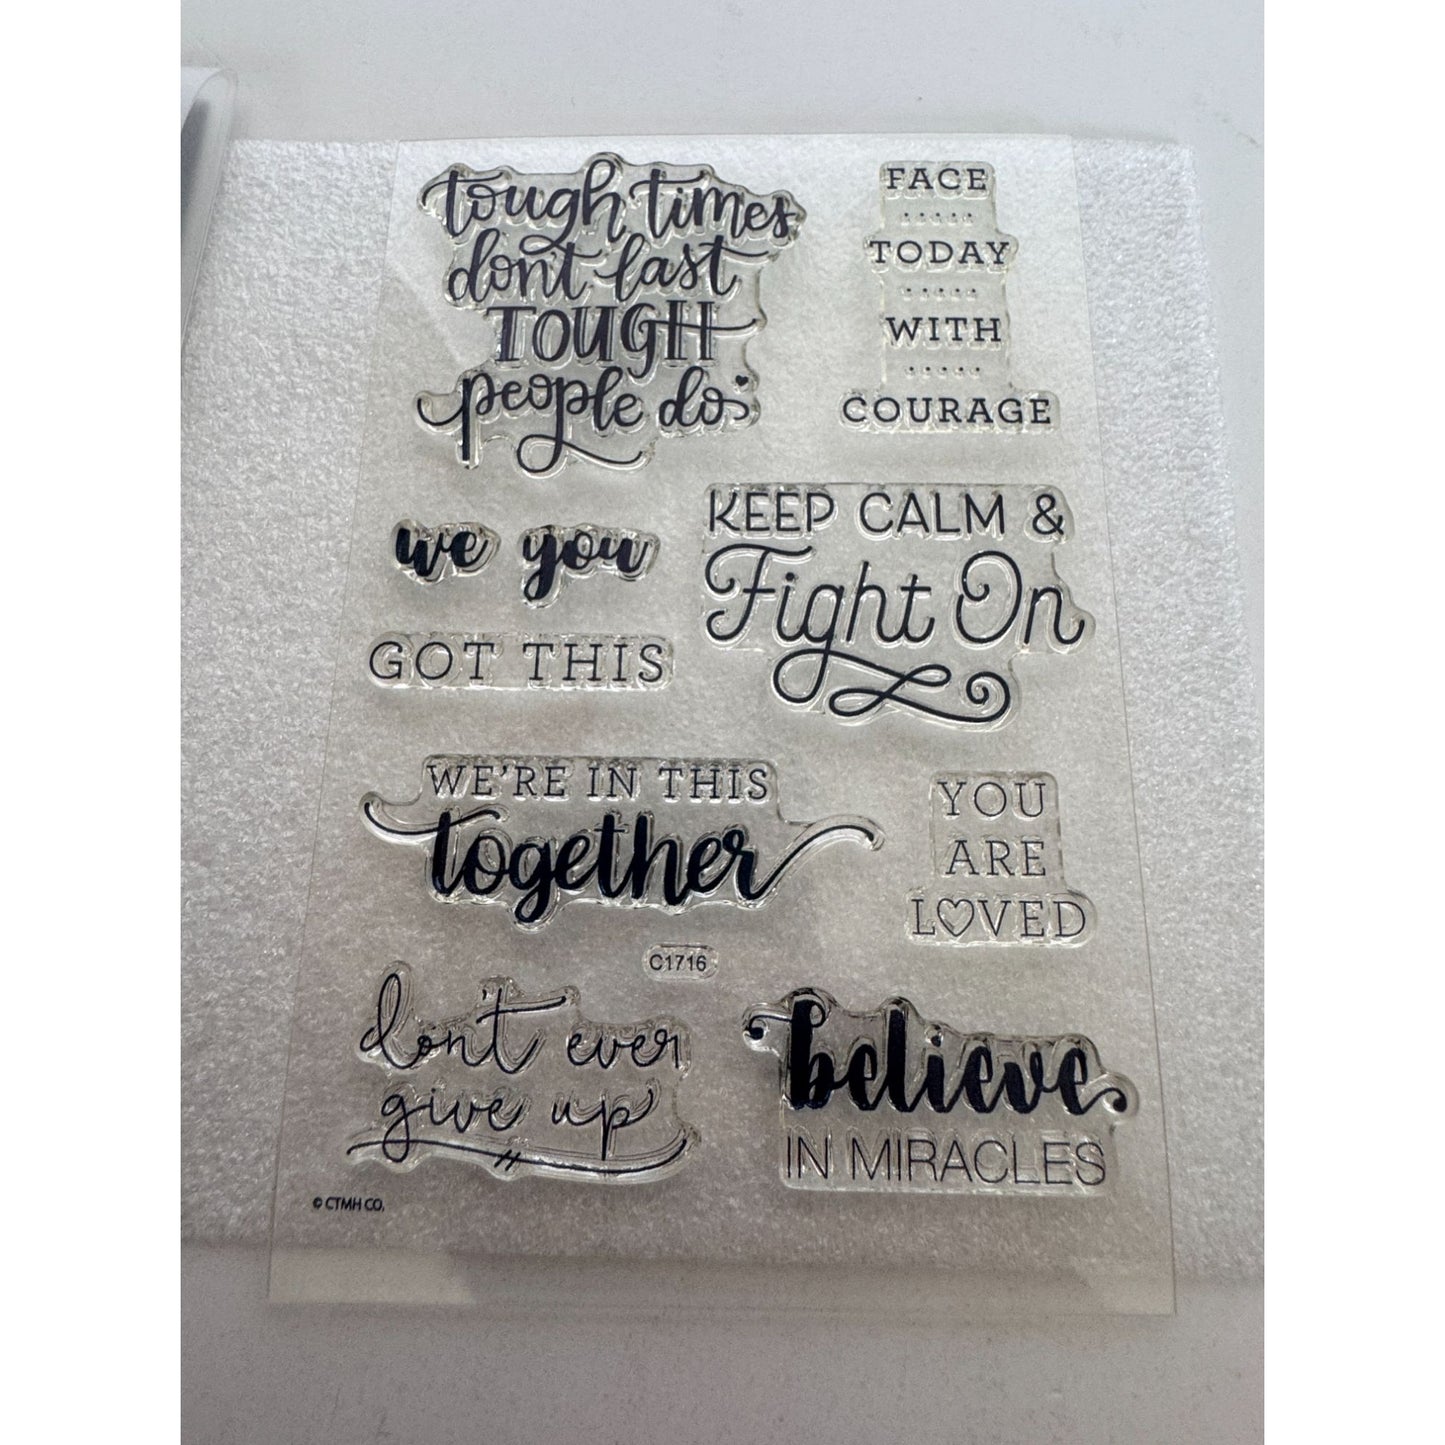 tough times
don't last
TOUGH
people do
FACE
TODAY
WITH
COURAGE
we you
GOT THIS
KEEP CALM &
Fight On
WE'RE IN THIS
together
YOU
ARE
LOVED
C1716
don't ever
give up
believe
IN MIRACLES
© CTMH CO.